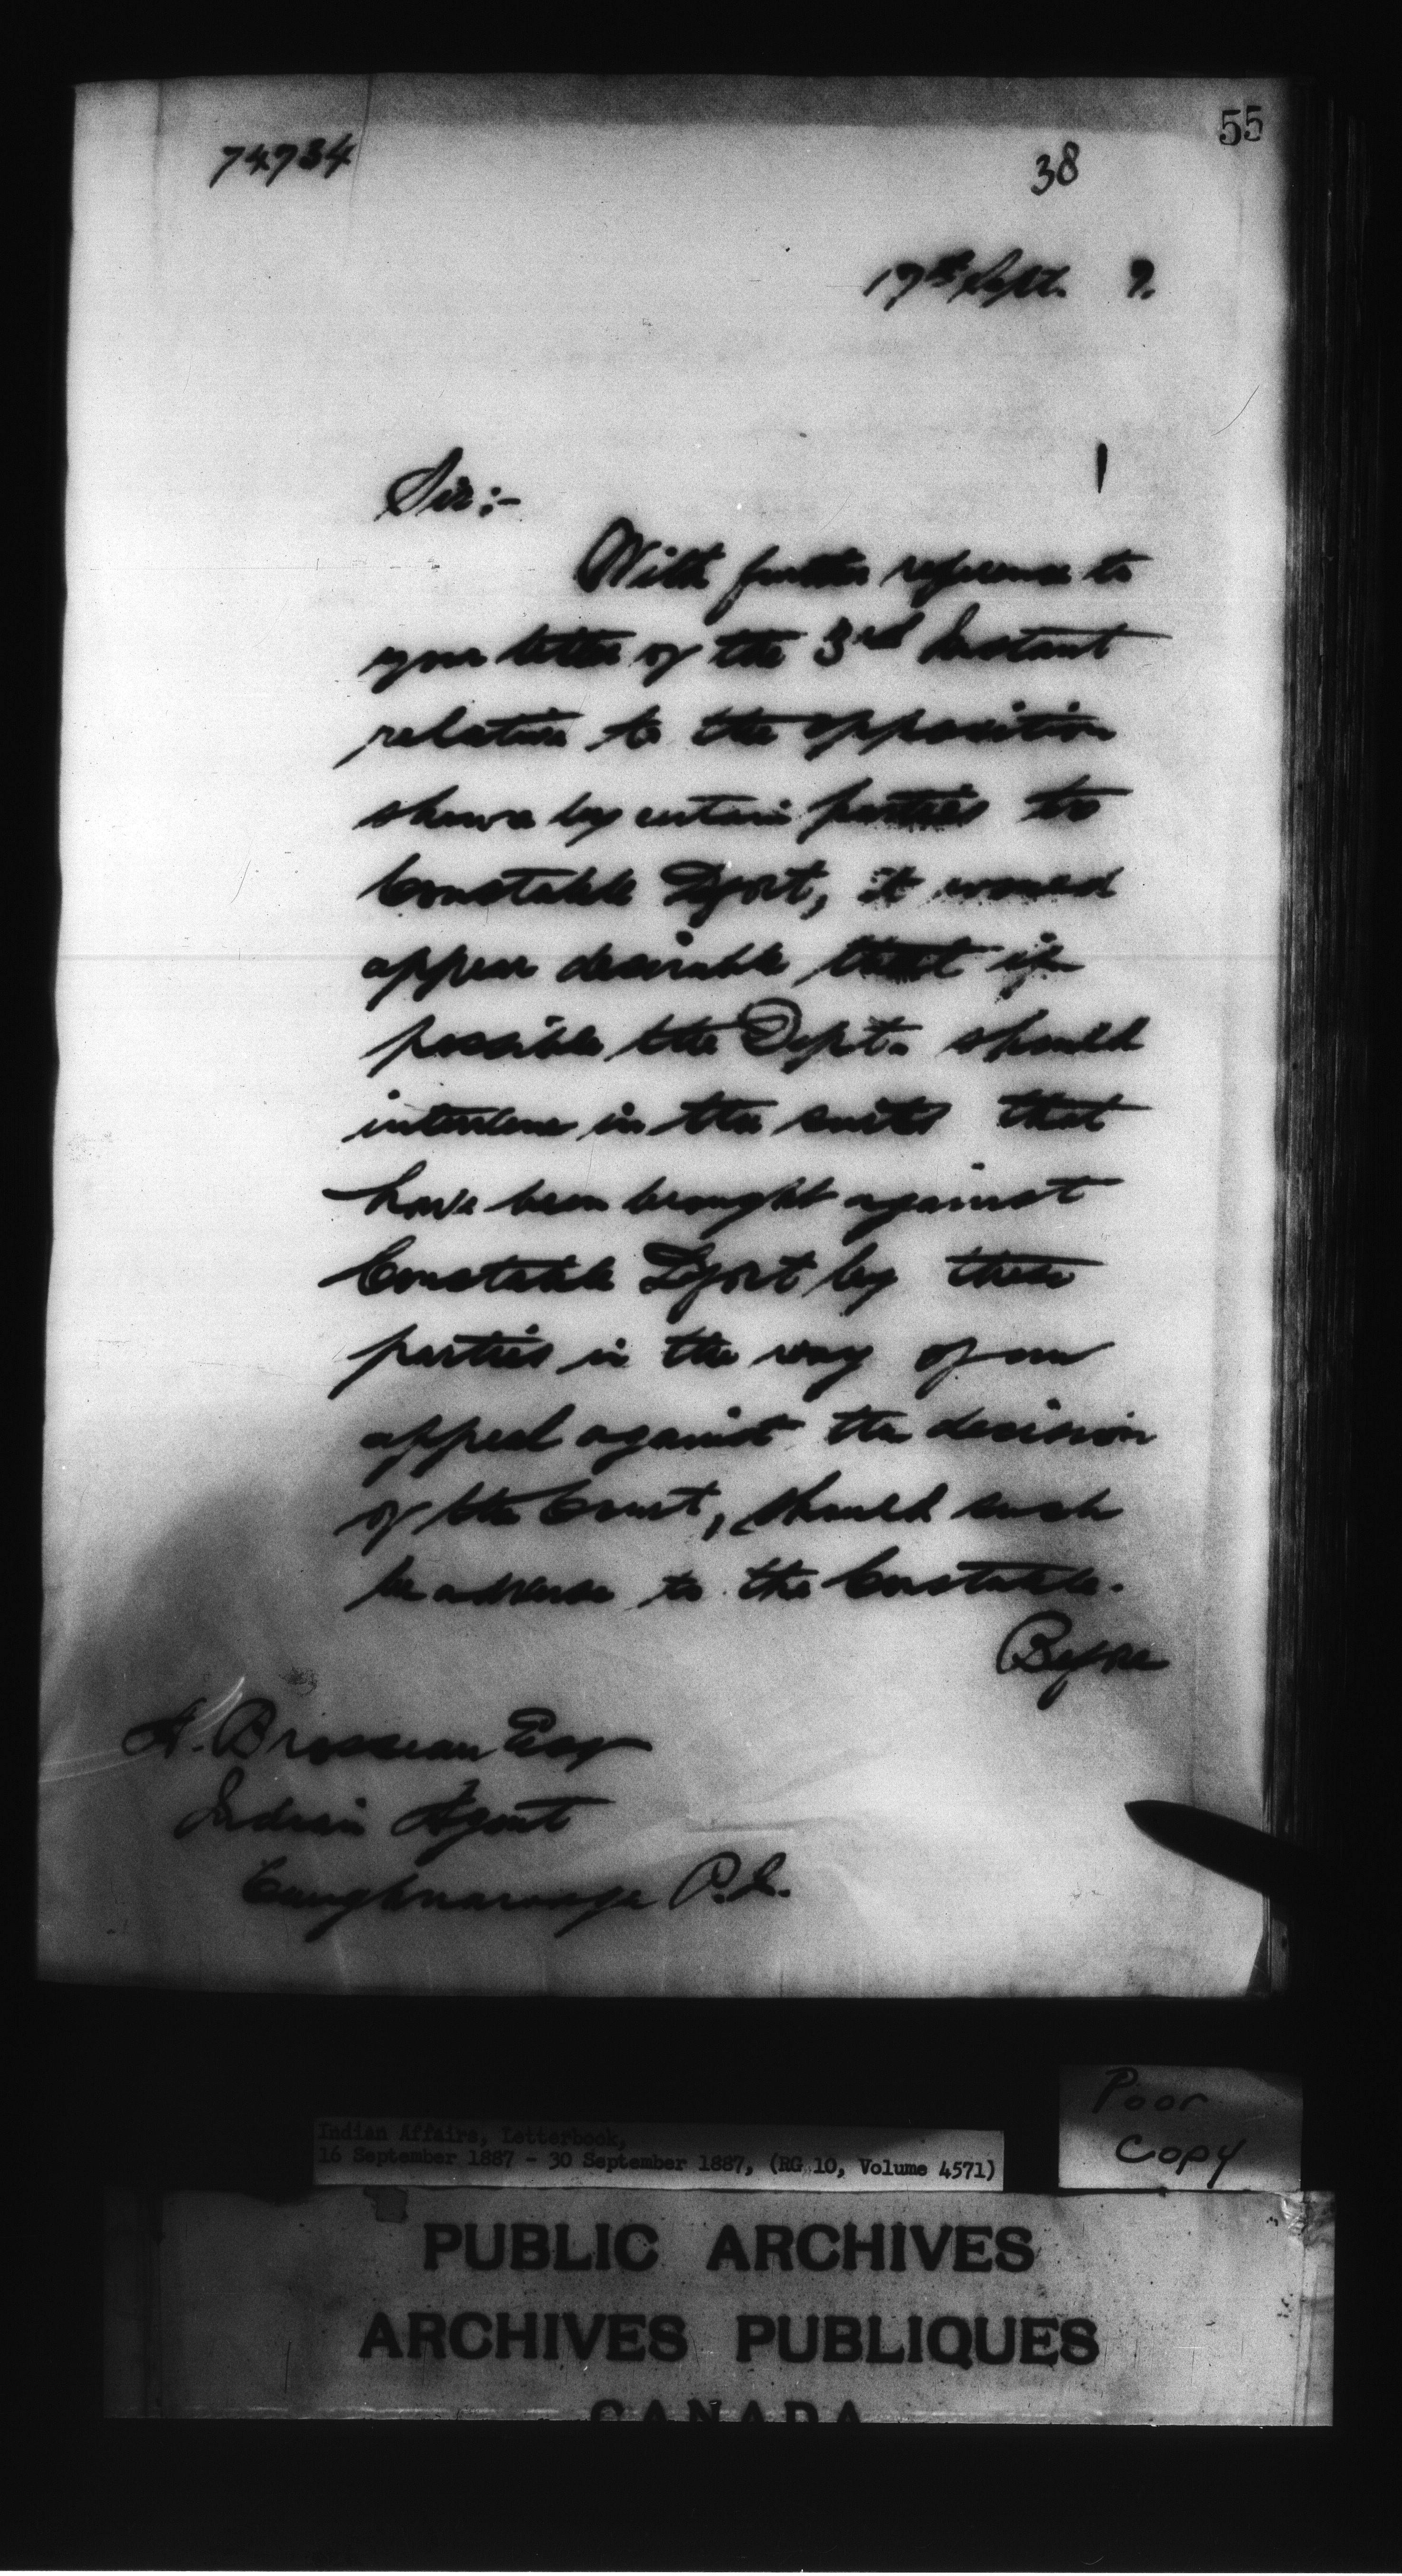 55
74734
38
17th Sept. 7.
Sir:-
With further reference to
your letter of the 3rd Instant
relative to the opposition
shown by certain parties to
Constable Dfort, it would
appear desirable that if
possible the Dept. should
intervene in the suits that
have been brought against
Constable Dfort by these
parties in the way of an
appeal against the decision
of the Court, should such
be adverse to the Constable.
Before
A. Brosseau Esq
Indian Agent
Caughnawaga P.Q.
Poor
Copy
Indian Affairs, Letterbook,
16 September 1887 - 30 September 1887, (RG 10, Volume 4571)
PUBLIC ARCHIVES
ARCHIVES PUBLIQUES
CANADA